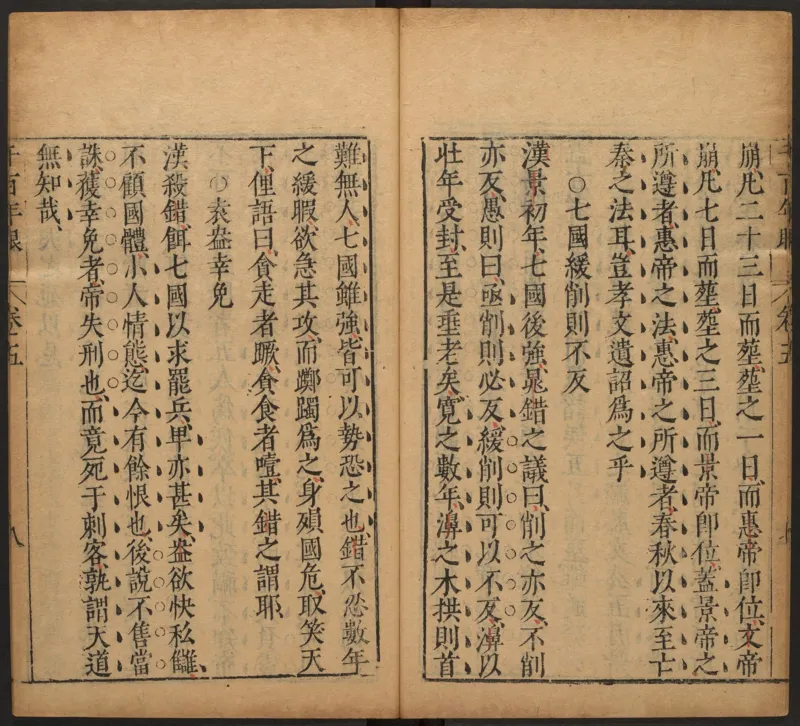 崩、凡二十三日而塟、塟之一日、而惠帝卽位、文帝
崩、凡七日而塟、塟之三日、而景帝卽位、蓋景帝之
所遵者、惠帝之法、惠帝之所遵者、春秋以來至亡
秦之法耳、豈孝文遺詔爲之乎
○七國緩削則不反
漢景初年、七國後強、晁錯之議曰、削之亦反、不削
亦反、愚則曰、亟削則必反、緩削則可以不反、濞以
壯年受封、至是垂老矣、寛之數年、濞之木拱則首
難無人、七國雖強、皆可以勢恐之也、錯不忍數年
之緩暇、欲急其攻、而躑躅爲之、身殞國危、取笑天
下、俚語曰、貪走者蹶、貪食者噎、其錯之謂耶
○袁盎幸免
漢殺錯、餌七國以求罷兵、卑亦甚矣、盎欲快私讎、
不顧國體、小人情態、迄今有餘恨也、後說不售、當
誅、獲幸免者、帝失刑也、而竟死于刺客、孰謂天道
無知哉、
千百年眼
卷五
八